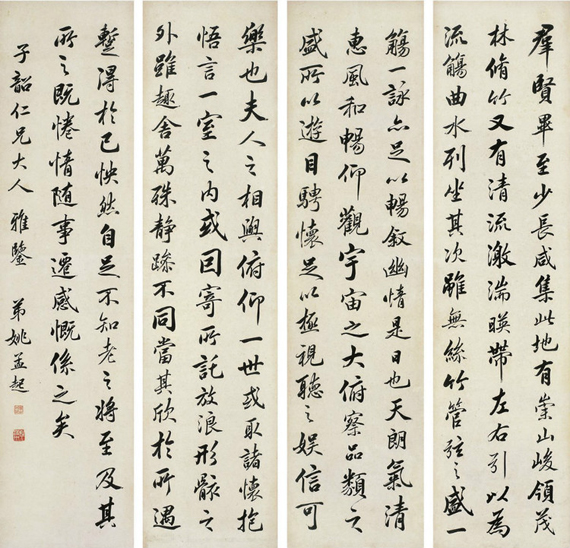 羣賢畢至少長咸集此地有崇山峻領茂
林脩竹又有清流激湍暎帶左右引以為
流觴曲水列坐其次雖無絲竹管弦之盛一
觴一詠亦足以暢叙幽情是日也天朗氣清
惠風和暢仰觀宇宙之大俯察品類之
盛所以遊目騁懷足以極視聽之娱信可
樂也夫人之相與俯仰一世或取諸懷抱
悟言一室之内或因寄所託放浪形骸之
外雖趣舍萬殊静躁不同當其欣於所遇
蹔得於己怏然自足不知老之將至及其
所之既惓情随事遷感慨係之矣
子韶仁兄大人 雅鑒 弟姚孟起